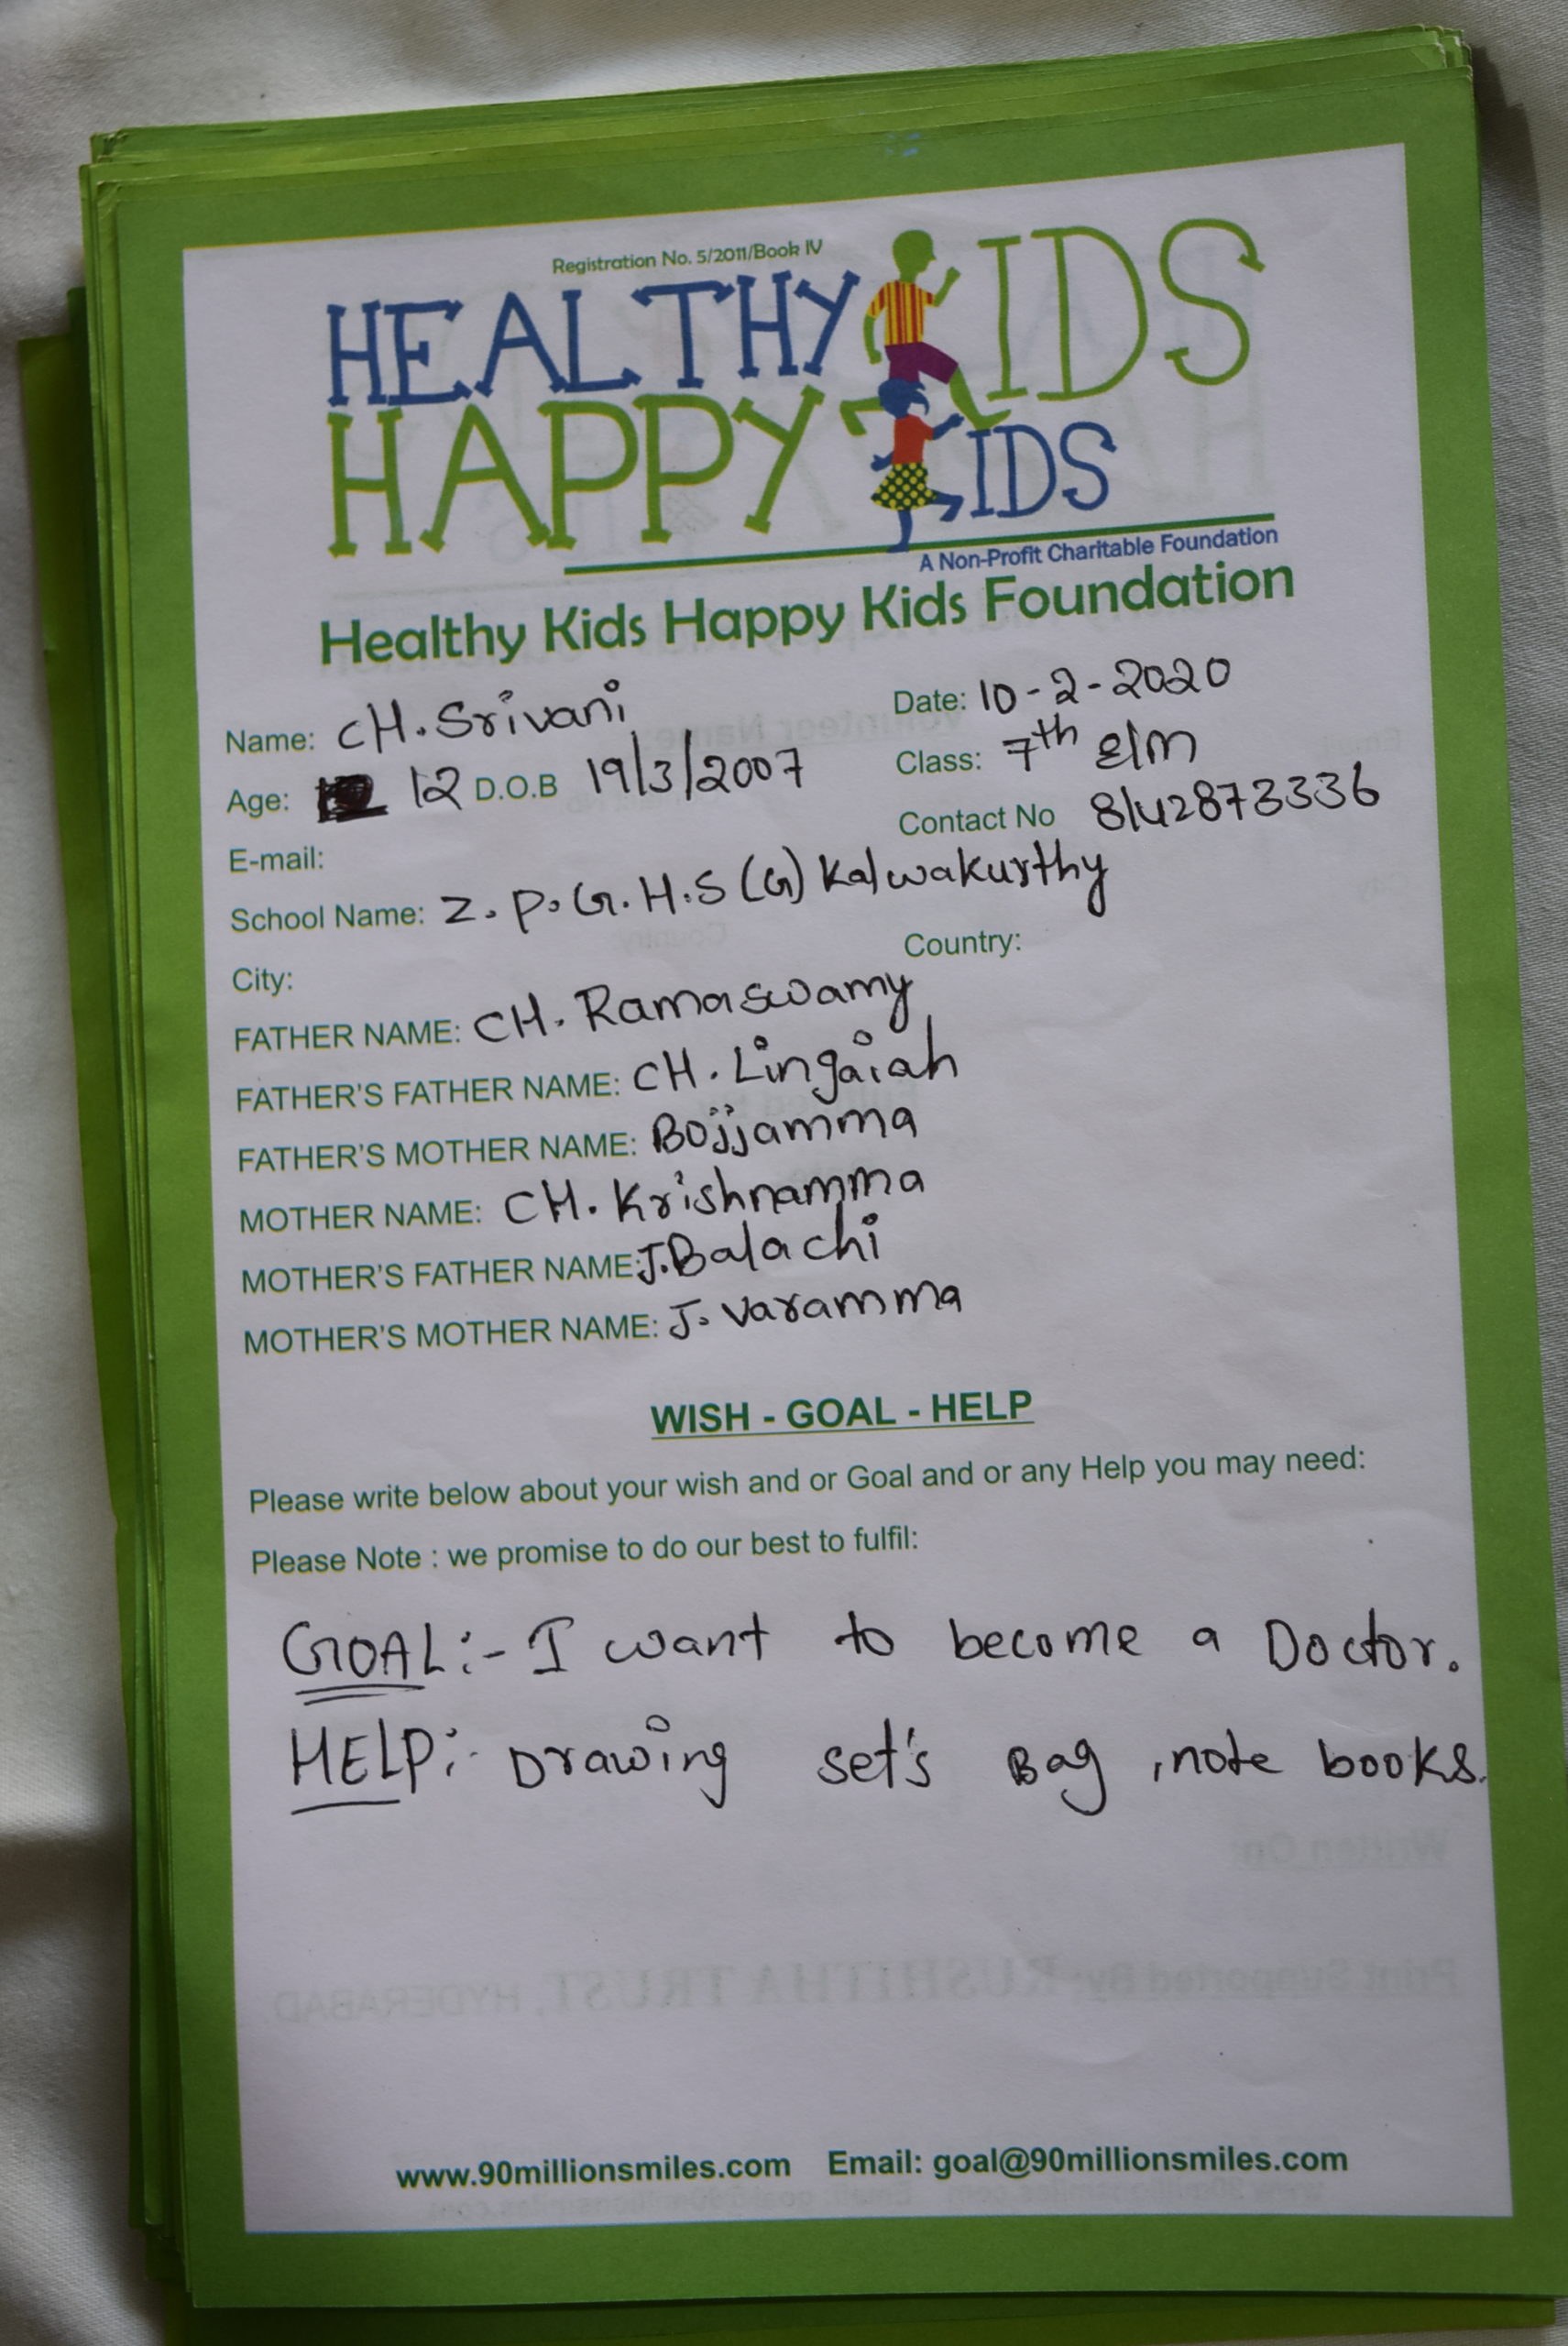 Registration No. 5/2011/Book IV
HEALTHY KIDS
HAPPY KIDS
A Non-Profit Charitable Foundation
Healthy Kids Happy Kids Foundation
Name: CH. Srivani Date: 10-2-2020
Age: 12 D.O.B 19/3/2007 Class: 7th E/M
E-mail: Contact No 8142873336
School Name: Z. P. G. H. S (G) Kalwakurthy
City: Country:
FATHER NAME: CH. Ramaswamy
FATHER'S FATHER NAME: CH. Lingaiah
FATHER'S MOTHER NAME: Bojjamma
MOTHER NAME: CH. Krishnamma
MOTHER'S FATHER NAME: J. Balachi
MOTHER'S MOTHER NAME: J. Varamma
WISH - GOAL - HELP
Please write below about your wish and or Goal and or any Help you may need:
Please Note : we promise to do our best to fulfil:
GOAL:- I want to become a Doctor.
HELP:- Drawing set's Bag , note books.
www.90millionsmiles.com Email: goal@90millionsmiles.com